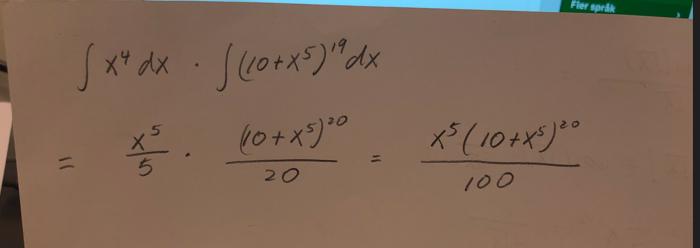 Fler språk
∫ x⁴ dx · ∫ (10+x⁵)¹⁹ dx
= x⁵/5 · (10+x⁵)²⁰/20 = x⁵(10+x⁵)²⁰/100